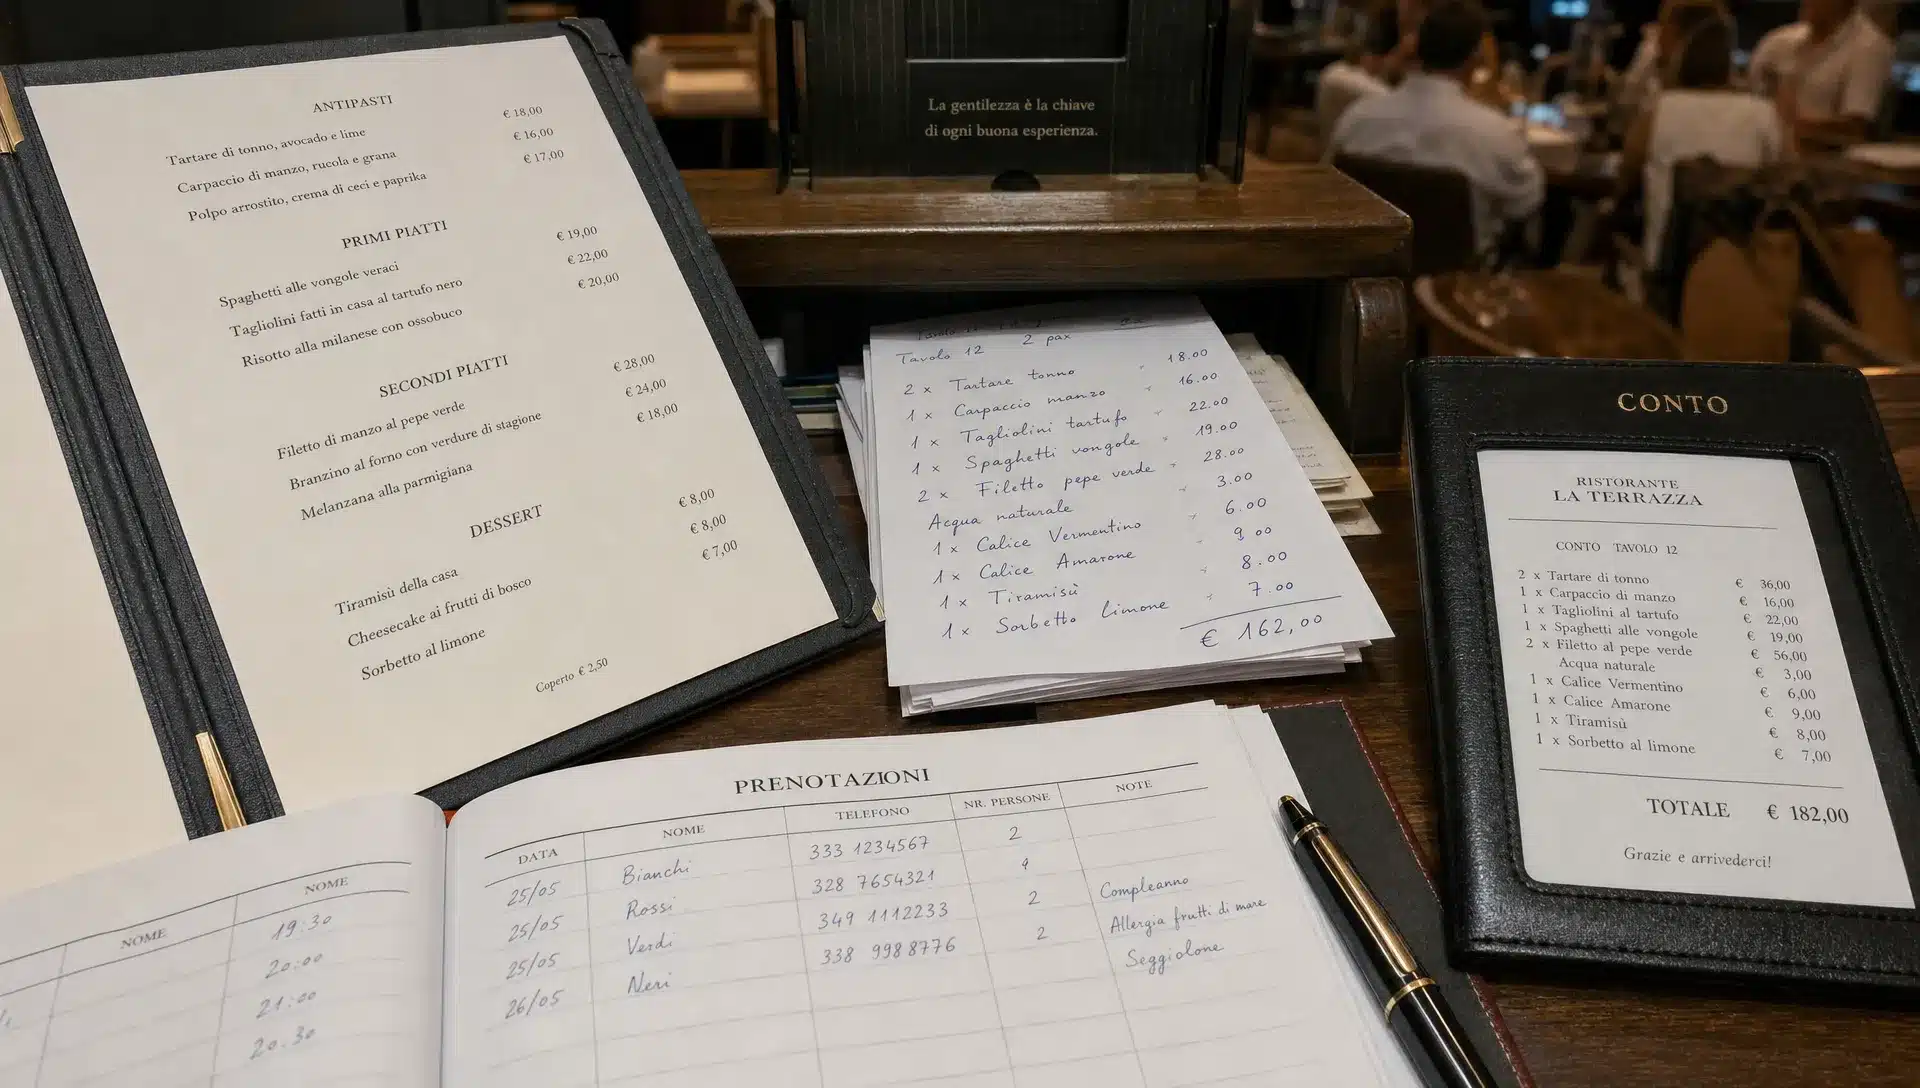 ANTIPASTI
Tartare di tonno, avocado e lime € 18,00
Carpaccio di manzo, rucola e grana € 16,00
Polpo arrostito, crema di ceci e paprika € 17,00
PRIMI PIATTI
Spaghetti alle vongole veraci € 19,00
Tagliolini fatti in casa al tartufo nero € 22,00
Risotto alla milanese con ossobuco € 20,00
SECONDI PIATTI
Filetto di manzo al pepe verde € 28,00
Branzino al forno con verdure di stagione € 24,00
Melanzana alla parmigiana € 18,00
DESSERT
Tiramisù della casa € 8,00
Cheesecake ai frutti di bosco € 8,00
Sorbetto al limone € 7,00
Coperto € 2,50
La gentilezza è la chiave
di ogni buona esperienza.
Tavolo 12 2 pax
2 x Tartare tonno 18.00
1 x Carpaccio manzo 16.00
1 x Tagliolini tartufo 22.00
1 x Spaghetti vongole 19.00
2 x Filetto pepe verde 28.00
Acqua naturale 3.00
1 x Calice Vermentino 6.00
1 x Calice Amarone 9 00
1 x Tiramisù 8.00
1 x Sorbetto limone 7.00
€ 162,00
CONTO
RISTORANTE
LA TERRAZZA
CONTO TAVOLO 12
2 x Tartare di tonno € 36,00
1 x Carpaccio di manzo € 16,00
1 x Tagliolini al tartufo € 22,00
1 x Spaghetti alle vongole € 19,00
2 x Filetto al pepe verde € 56,00
Acqua naturale € 3,00
1 x Calice Vermentino € 6,00
1 x Calice Amarone € 9,00
1 x Tiramisù € 8,00
1 x Sorbetto al limone € 7,00
TOTALE € 182,00
Grazie e arrivederci!
NOME NOME
19:30
20:00
21:00
20.30
PRENOTAZIONI
DATA NOME TELEFONO NR. PERSONE NOTE
25/05 Bianchi 333 1234567 2
25/05 Rossi 328 7654321 4 Compleanno
25/05 Verdi 349 1112233 2 Allergia frutti di mare
26/05 Neri 338 9988776 2 Seggiolone